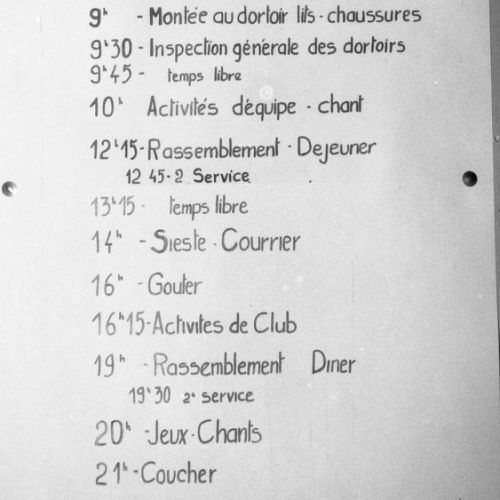 9ʰ - Montée au dortoir lits - chaussures
9ʰ30 - Inspection générale des dortoirs
9ʰ45 - temps libre
10ʰ Activités d'équipe - chant
12ʰ15 - Rassemblement - Dejeuner
12 45 - 2 Service
13ʰ15 - temps libre
14ʰ - Sieste - Courrier
16ʰ - Gouter
16ʰ15 - Activites de Club
19ʰ - Rassemblement Diner
19ʰ30 2ᵉ service
20ʰ - Jeux - Chants
21ʰ - Coucher